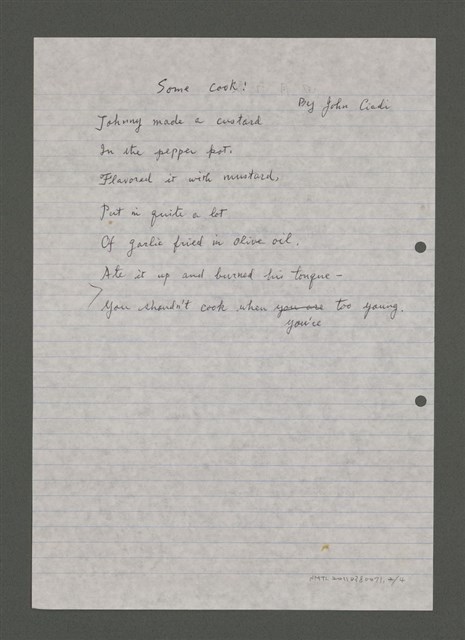 Some cook!
By John Ciadi
Johnny made a custard
In the pepper pot.
Flavored it with mustard,
Put in quite a lot
Of garlic fried in olive oil.
Ate it up and burned his tongue –
You shouldn't cook when you are too young.
you're